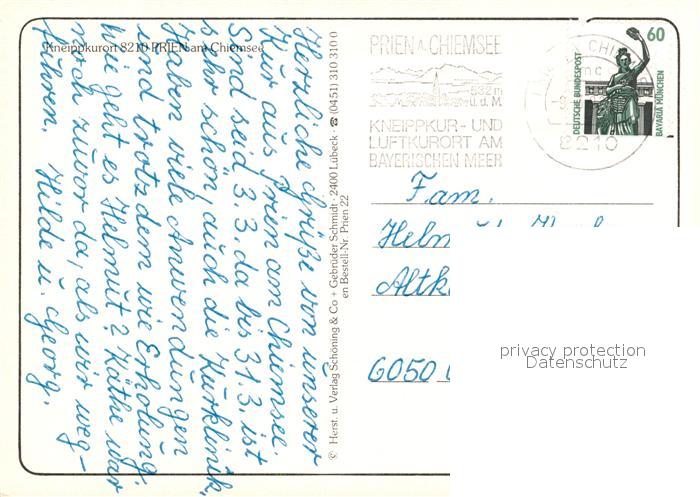 Kneippkurort 8210 PRIEN am Chiemsee
Herzliche Grüße von unserer
Kur aus Prien am Chiemsee.
Sind seid 3.3. da bis 31.3. ist
sehr schön, auch die Kurklinik.
Haben viele Anwendungen
und trotzdem wie Erholung.
Wie geht es Helmut? Käthe war
noch zuvor da, als wir weg-
fuhren. Hilde u. Georg.
© Herst. u. Verlag Schöning & Co + Gebrüder Schmidt · 2400 Lübeck · ☎ (0451) 310 310 0
en Bestell-Nr. Prien 22
PRIEN A. CHIEMSEE
532 m
ü.d.M.
KNEIPPKUR- UND
LUFTKURORT AM
BAYERISCHEN MEER
8210
60
DEUTSCHE BUNDESPOST
BAVARIA MÜNCHEN
Fam.
Altk
6050
privacy protection
Datenschutz